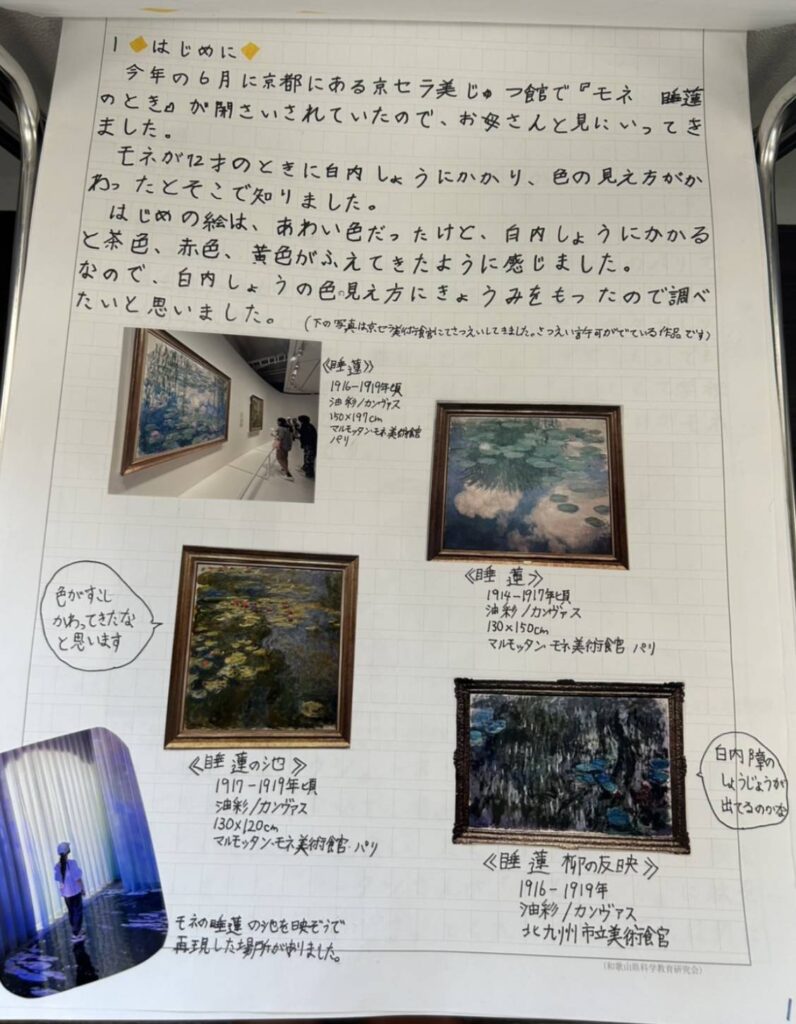 1 はじめに
今年の6月に京都にある京セラ美じゅつ館で『モネ 睡蓮
のとき』が開さいされていたので、お母さんと見にいってき
ました。
モネが72才のときに白内しょうにかかり、色の見え方がか
わったとそこで知りました。
はじめの絵は、あわい色だったけど、白内しょうにかかる
と茶色、赤色、黄色がふえてきたように感じました。
なので、白内しょうの色の見え方にきょうみをもったので調べ
たいと思いました。(下の写真は京セラ美術館にてさつえいしてきました。さつえい許可がでている作品です)
《睡蓮》
1916-1919年頃
油彩/カンヴァス
150×197cm
マルモッタン・モネ美術館
パリ
《睡蓮》
1914-1917年頃
油彩/カンヴァス
130×150cm
マルモッタン・モネ美術館 パリ
色がすこし
かわってきたな
と思います
《睡蓮の池》
1917-1919年頃
油彩/カンヴァス
130×120cm
マルモッタン・モネ美術館・パリ
白内障の
しょうじょうが
出てるのかな
《睡蓮 柳の反映》
1916-1919年
油彩/カンヴァス
北九州市立美術館
モネの睡蓮の池を映ぞうで
再現した場所がありました。
(和歌山県科学教育研究会)
1